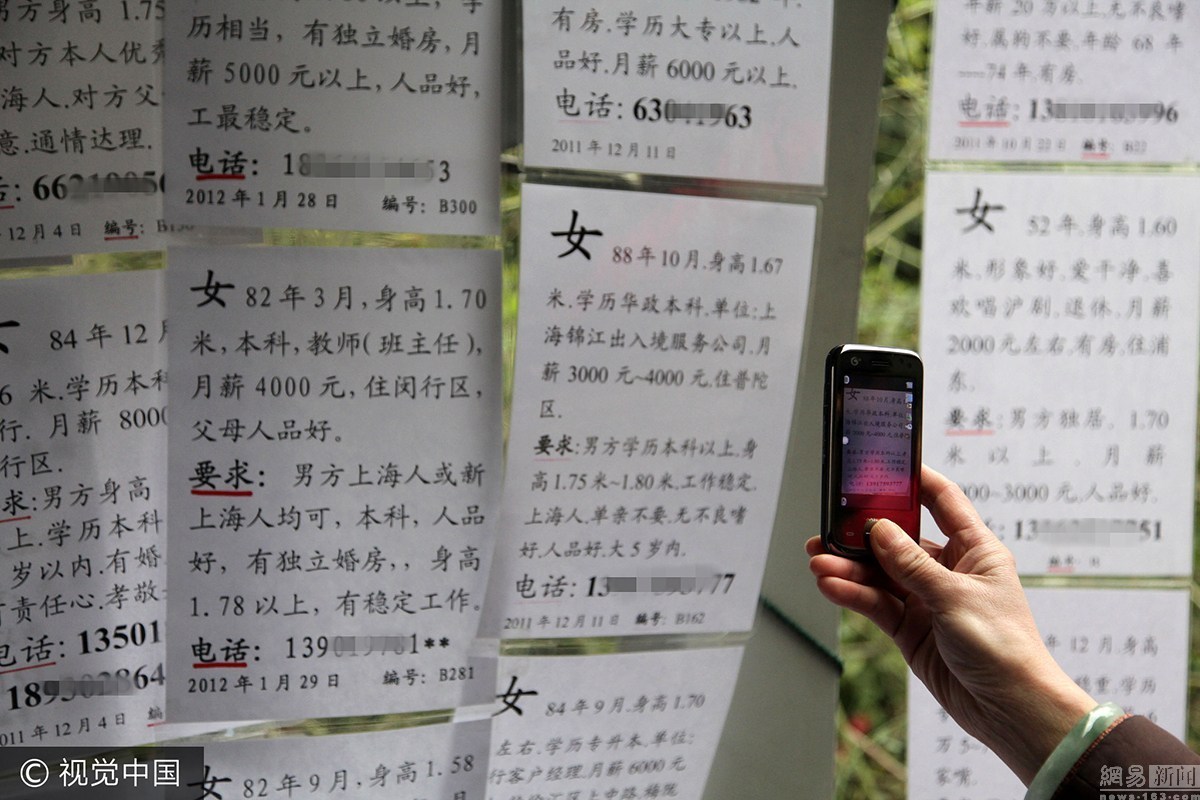 男方身高 1.75
对方本人优秀
海人.对方父
意.通情达理.
12月4日 编号:
历相当，有独立婚房，月
薪 5000 元以上，人品好，
工最稳定。
电话：
2012 年 1 月 28 日 编号：B300
有房.学历大专以上.人
品好.月薪 6000 元以上.
电话:
2011 年 12 月 11 日
年薪 20 万以上.无不良嗜
好.属狗不要.年龄 68 年
----74 年.有房.
电话:
2011 年 10 月 22 日 编号: B22
84 年 12 月
6 米.学历本科
行. 月薪 8000
行区.
求:男方身高
上.学历本科
岁以内.有婚
责任心.孝敬
电话:
011 年 12 月 4 日 编
女 82 年 3 月，身高 1.70
米，本科，教师(班主任)，
月薪 4000 元，住闵行区，
父母人品好。
要求： 男方上海人或新
上海人均可，本科，人品
好，有独立婚房，，身高
1.78 以上，有稳定工作。
电话：
2012 年 1 月 29 日 编号：B281
女 88 年 10 月.身高 1.67
米.学历华政本科.单位:上
海锦江出入境服务公司.月
薪 3000 元~4000 元.住普陀
区.
要求:男方学历本科以上.身
高 1.75 米~1.80 米.工作稳定.
上海人.单亲不要.无不良嗜
好.人品好.大 5 岁内.
电话:
2011 年 12 月 11 日 编号: B162
女 52 年.身高 1.60
米.形象好.爱干净.喜
欢唱沪剧.退休.月薪
2000 元左右.有房.住浦
东.
要求:男方独居. 1.70
米以上.月薪
000~3000 元.人品好.
编号:
女 82 年 9 月，身高 1.58
女 84 年 9 月.身高 1.70
左右.学历专升本.单位:
行客户经理.月薪 6000 元
年 12 月.身高
稳重.学历
万 5~
家嘴.
© 视觉中国
網易新闻
news·163·com